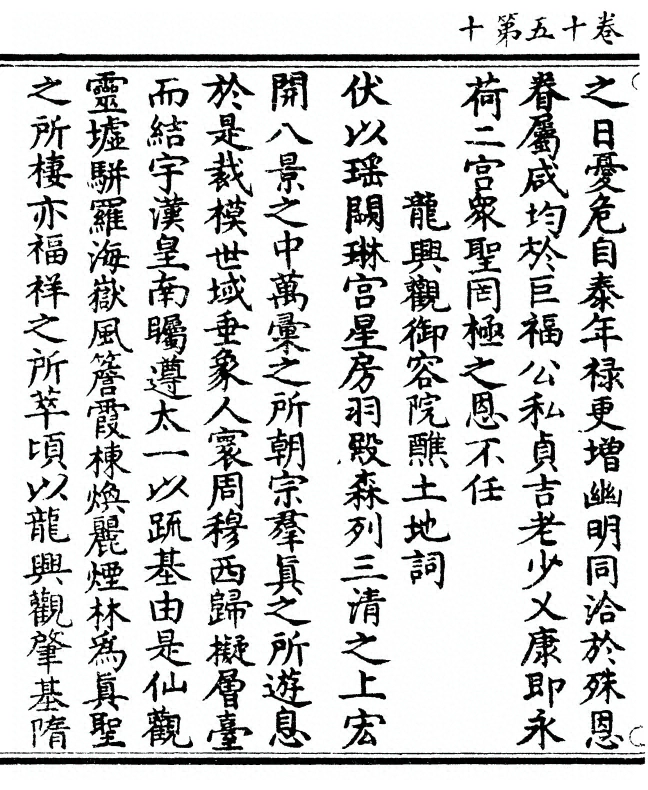 卷十五第十
之日憂危自泰年祿更增幽明同洽於殊恩
眷屬咸均於巨福公私貞吉老少乂康即永
荷二宮衆聖罔極之恩不任
龍興觀御容院醮土地詞
伏以瑶闕琳宮星房羽殿森列三清之上宏
開八景之中萬彙之所朝宗羣眞之所遊息
於是裁模世域垂象人寰周穆西歸擬層臺
而結宇漢皇南矚遵太一以䟽基由是仙觀
靈墟駢羅海嶽風簷霞棟煥麗煙林爲眞聖
之所棲亦福祥之所萃頃以龍興觀肇基隋